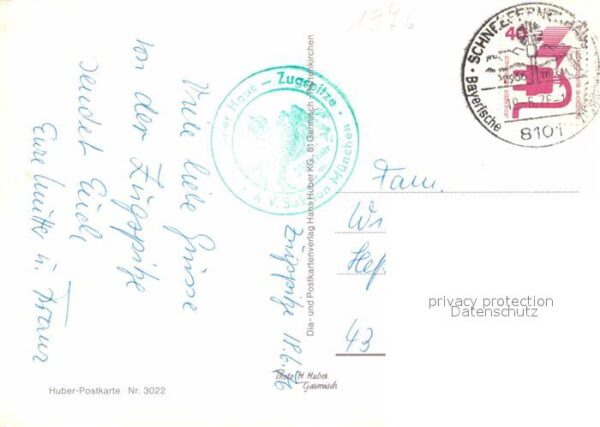 1976
Viele liebe Grüsse
von der Zugspitze
sendet Euch
Eure Mutti u. Franz
Zugspitze 18.6.76
Haus – Zugspitze
A.V. Sektion München
Dia- und Postkartenverlag Hans Huber KG., 81 Garmisch-Partenkirchen
40
Bayerische
8101
Fam.
Wi
Hef
43
privacy protection
Datenschutz
Photo H. Huber
Garmisch
Huber-Postkarte Nr. 3022